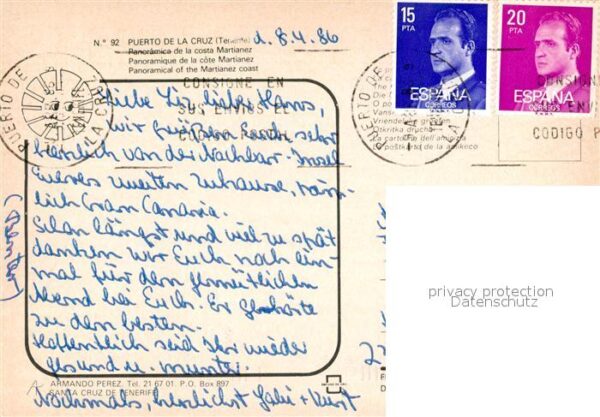 N.° 92 PUERTO DE LA CRUZ (Tenerife)
Panorámica de la costa Martianez
Panoramique de la côte Martianez
Panoramical of the Martianez coast
d. 8.4.86
15
PTA
ESPAÑA
CORREOS
20
PTA
ESPAÑA
CORREOS
PUERTO DE LA CRUZ
CONSIGNE EN
SUS ENVIOS EL
CODIGO POSTAL
CONSIGN
ENVI
CODIGO P
Vriendelijke groeten
Otkritka druzba
La cartoline dell'amicizia
Liebe Lis, lieber Hans,
wir grüßen Euch sehr
herzlich von der Nachbar-Insel
Eueres zweiten Zuhause, näm-
lich Gran Canaria.
Schon längst und viel zu spät
danken wir Euch noch ein-
mal für den gemütlichen
Abend bei Euch. Er gehörte
zu den besten.
Hoffentlich seid Ihr wieder
gesund u. munter.
Nochmals, herzlichst Gabi + Kurt
ARMANDO PEREZ. Tel. 21 67 01. P.O. Box 897
SANTA CRUZ DE TENERIFE
privacy protection
Datenschutz